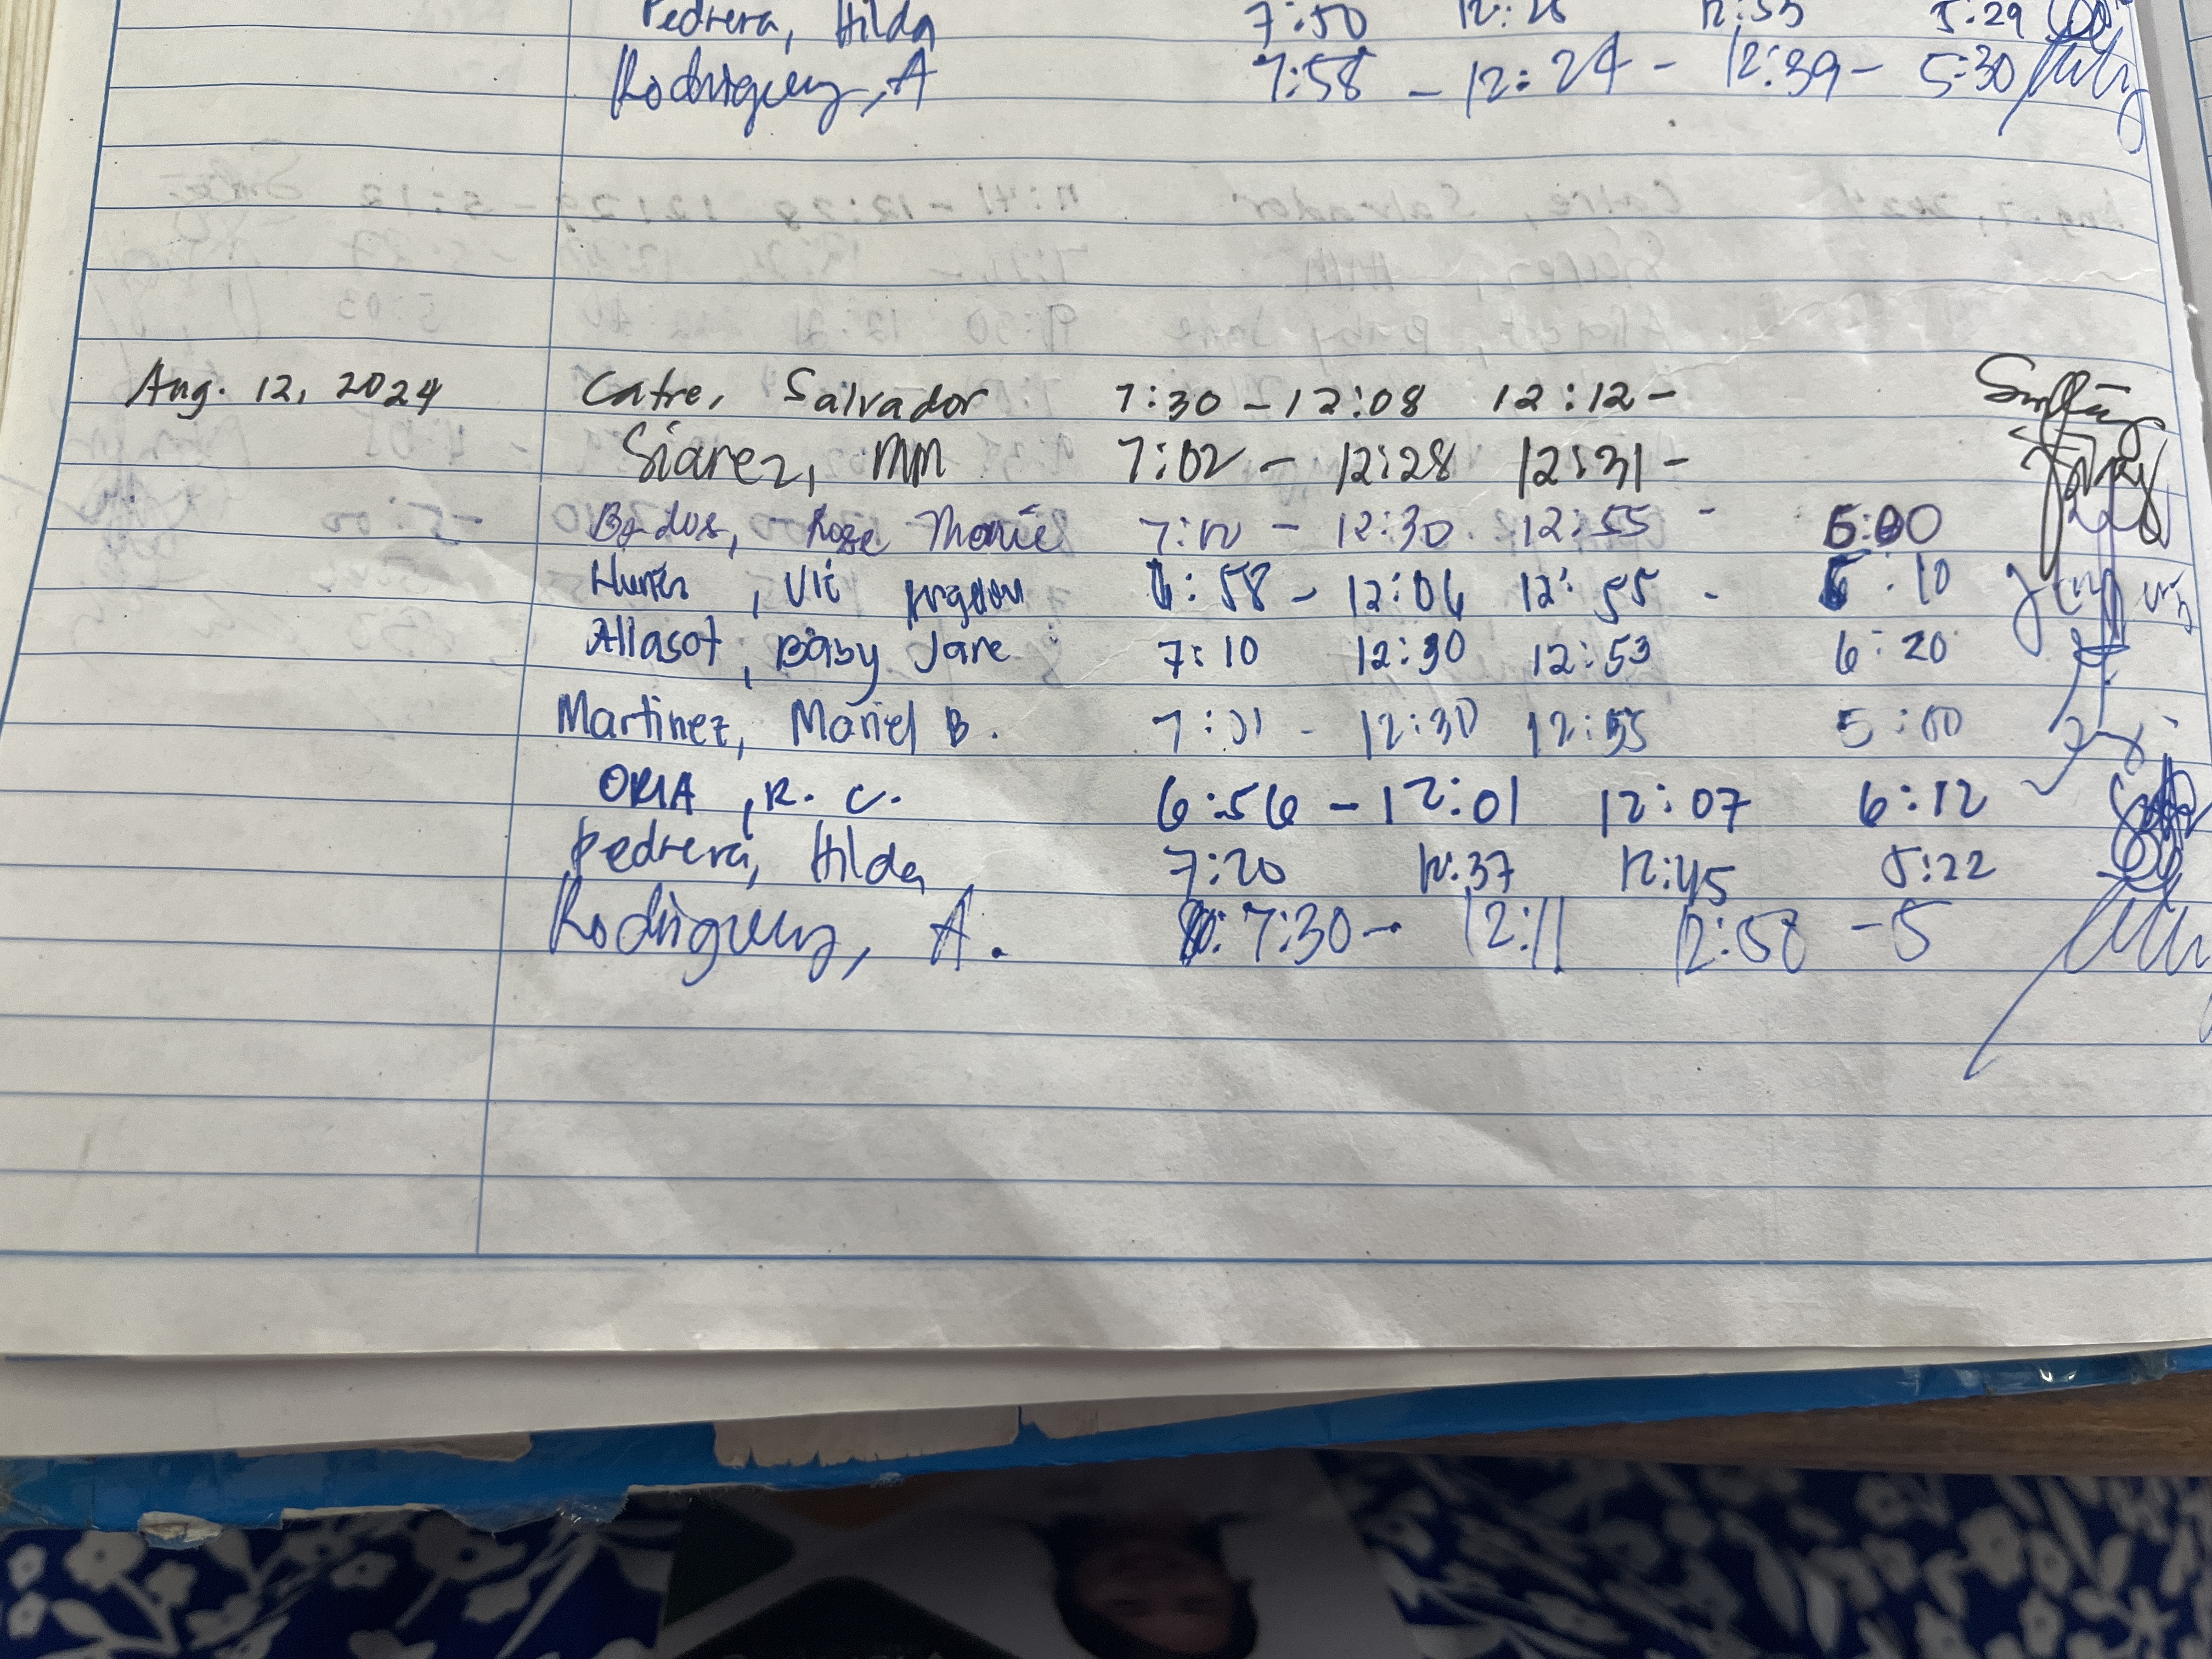 Pedrera, Hilda 7:50 12:26 12:53 5:29
Rodriguez, A 7:58 - 12:24 - 12:39 - 5:30
Aug. 12, 2024 Catre, Salvador 7:30 - 12:08 12:12 -
Siarez, MM 7:02 - 12:28 12:31 -
Rose 7:10 - 12:30 12:55 - 5:00
, Vic 6:58 - 12:06 12:55 - 5:10
Allasot, Baby Jane 7:10 12:30 12:53 6:20
Martinez, Mariel B. 7:01 - 12:30 12:55 5:00
ORIA, R. C. 6:56 - 12:01 12:07 6:12
Pedrera, Hilda 7:20 12:37 12:45 5:22
Rodriguez, A. 7:30 - 12:11 12:58 - 5